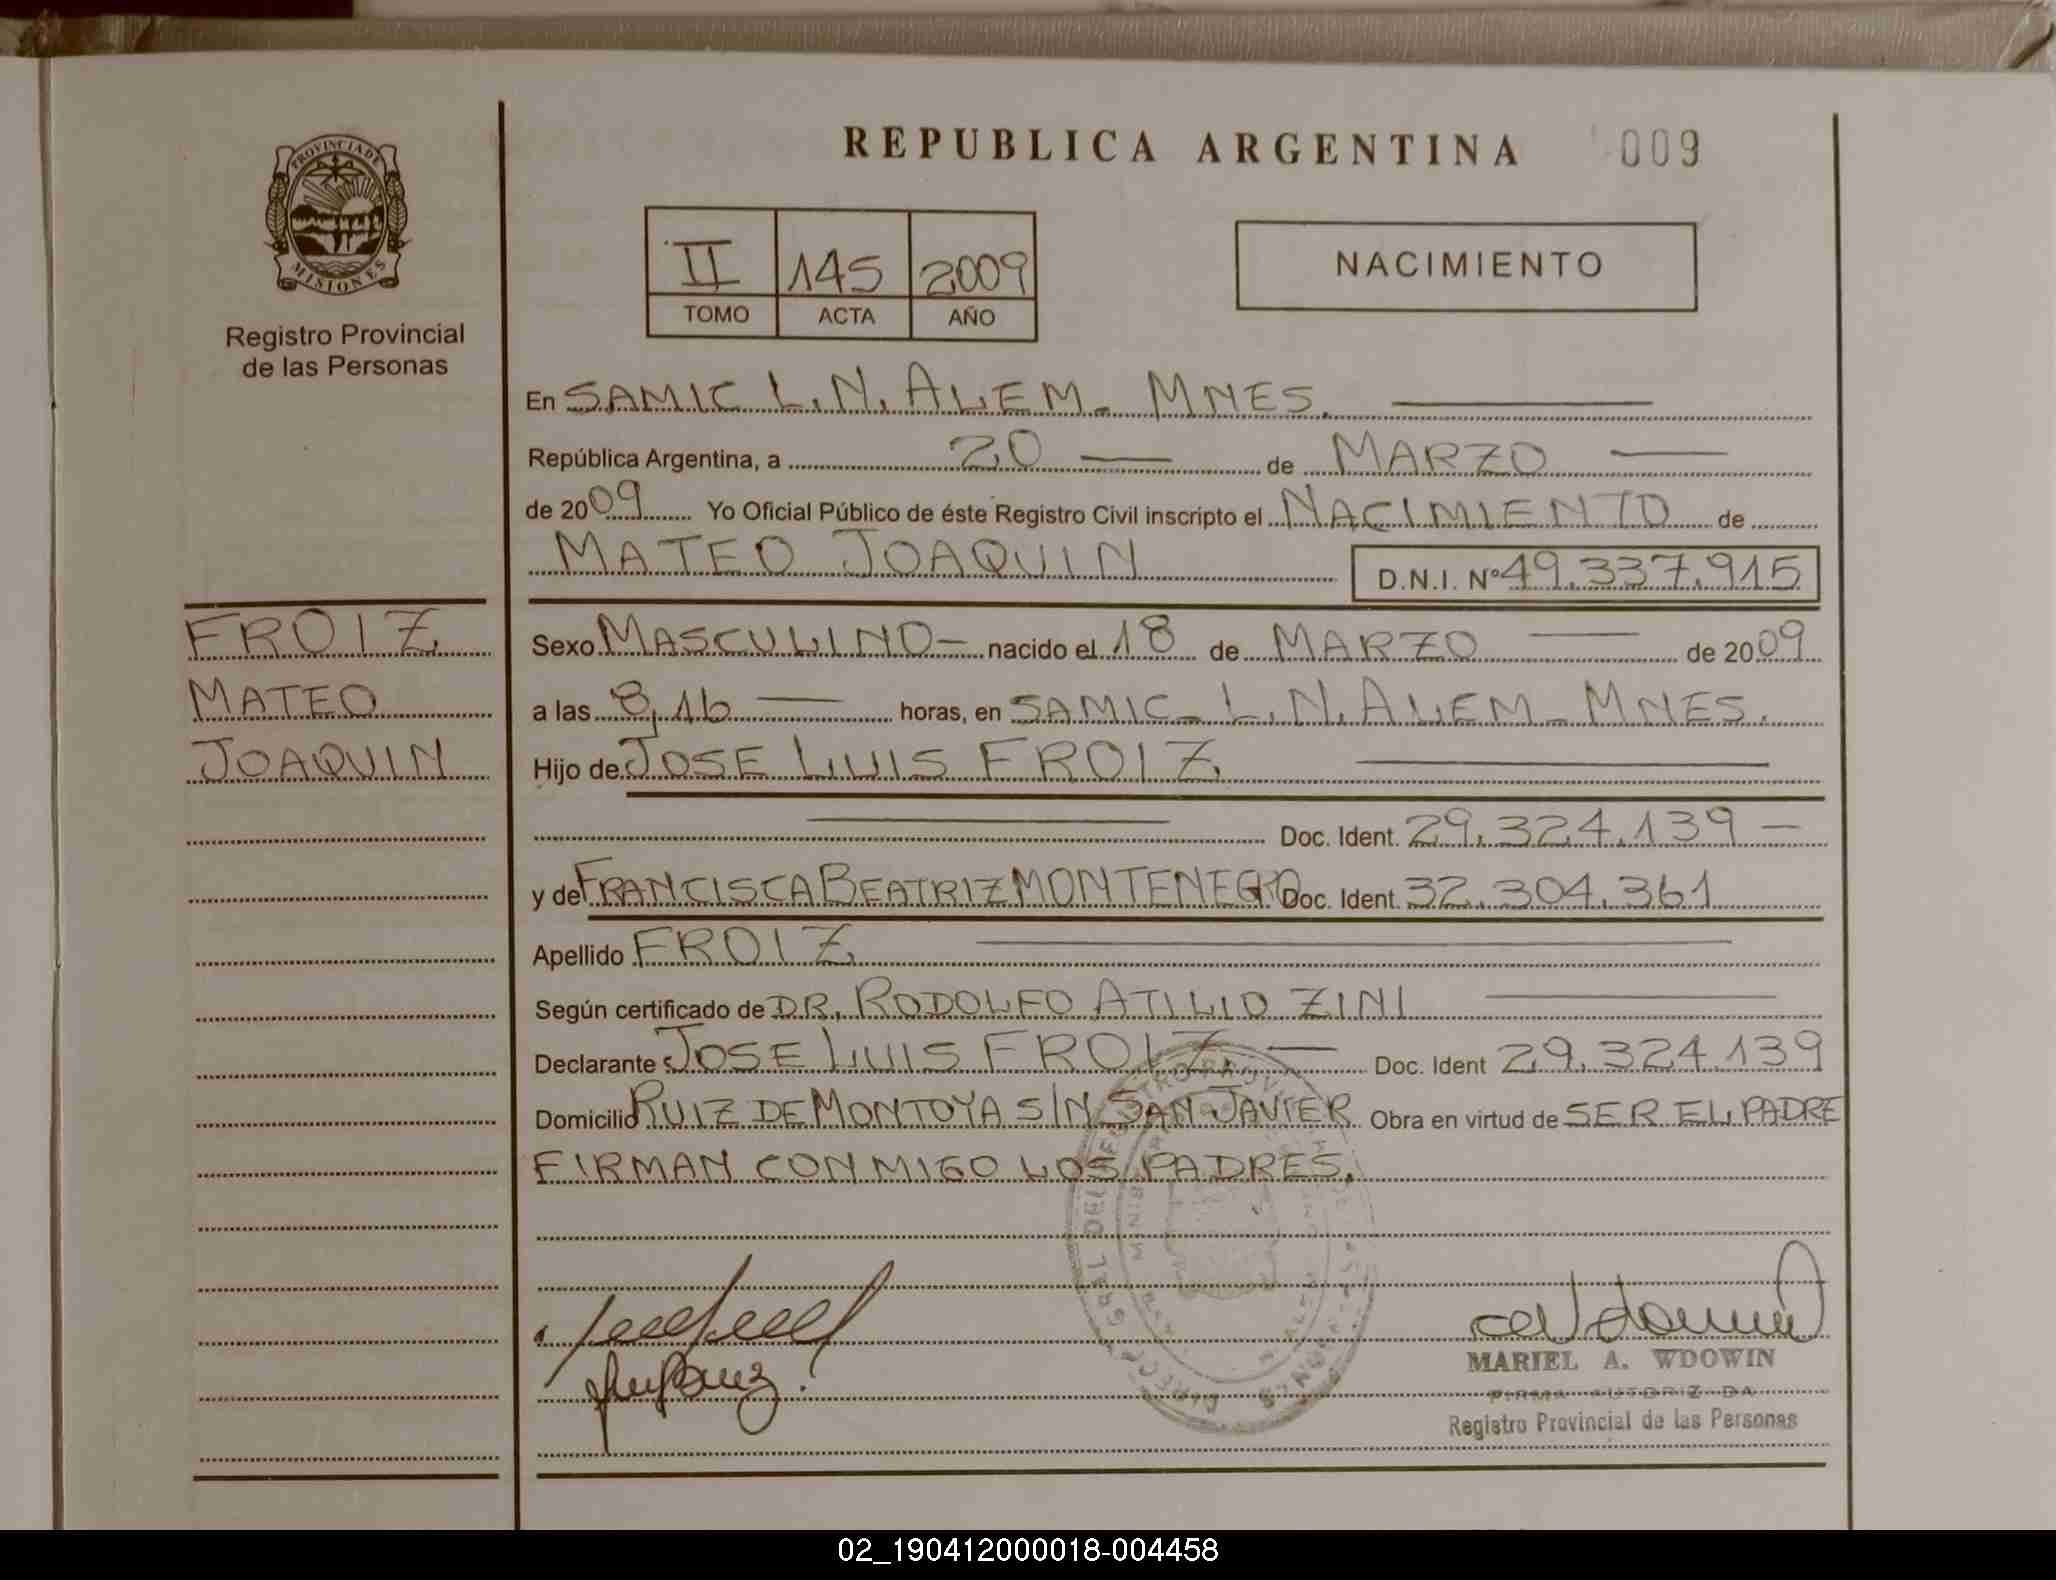 REPUBLICA ARGENTINA 009
PROVINCIA DE
MISIONES
Registro Provincial
de las Personas
II 145 2009
TOMO ACTA AÑO
NACIMIENTO
En SAMIC L.N. ALEM - MNES.
República Argentina, a 20 — de MARZO —
de 2009 Yo Oficial Público de éste Registro Civil inscripto el NACIMIENTO de
MATEO JOAQUIN D.N.I. Nº 49.337.915
FROIZ
MATEO
JOAQUIN
Sexo MASCULINO - nacido el 18 de MARZO — de 2009
a las 8,16 — horas, en SAMIC - L.N. ALEM - MNES.
Hijo de JOSE LUIS FROIZ —
— Doc. Ident. 29.324.139 —
y de FRANCISCA BEATRIZ MONTENEGRO Doc. Ident. 32.304.361
Apellido FROIZ —
Según certificado de DR. RODOLFO ATILIO ZINI —
Declarante JOSE LUIS FROIZ — Doc. Ident 29.324.139
Domicilio RUIZ DE MONTOYA S/N SAN JAVIER Obra en virtud de SER EL PADRE
FIRMAN CONMIGO LOS PADRES.
MARIEL A. WDOWIN
FIRMA AUTORIZADA
Registro Provincial de las Personas
02_190412000018-004458